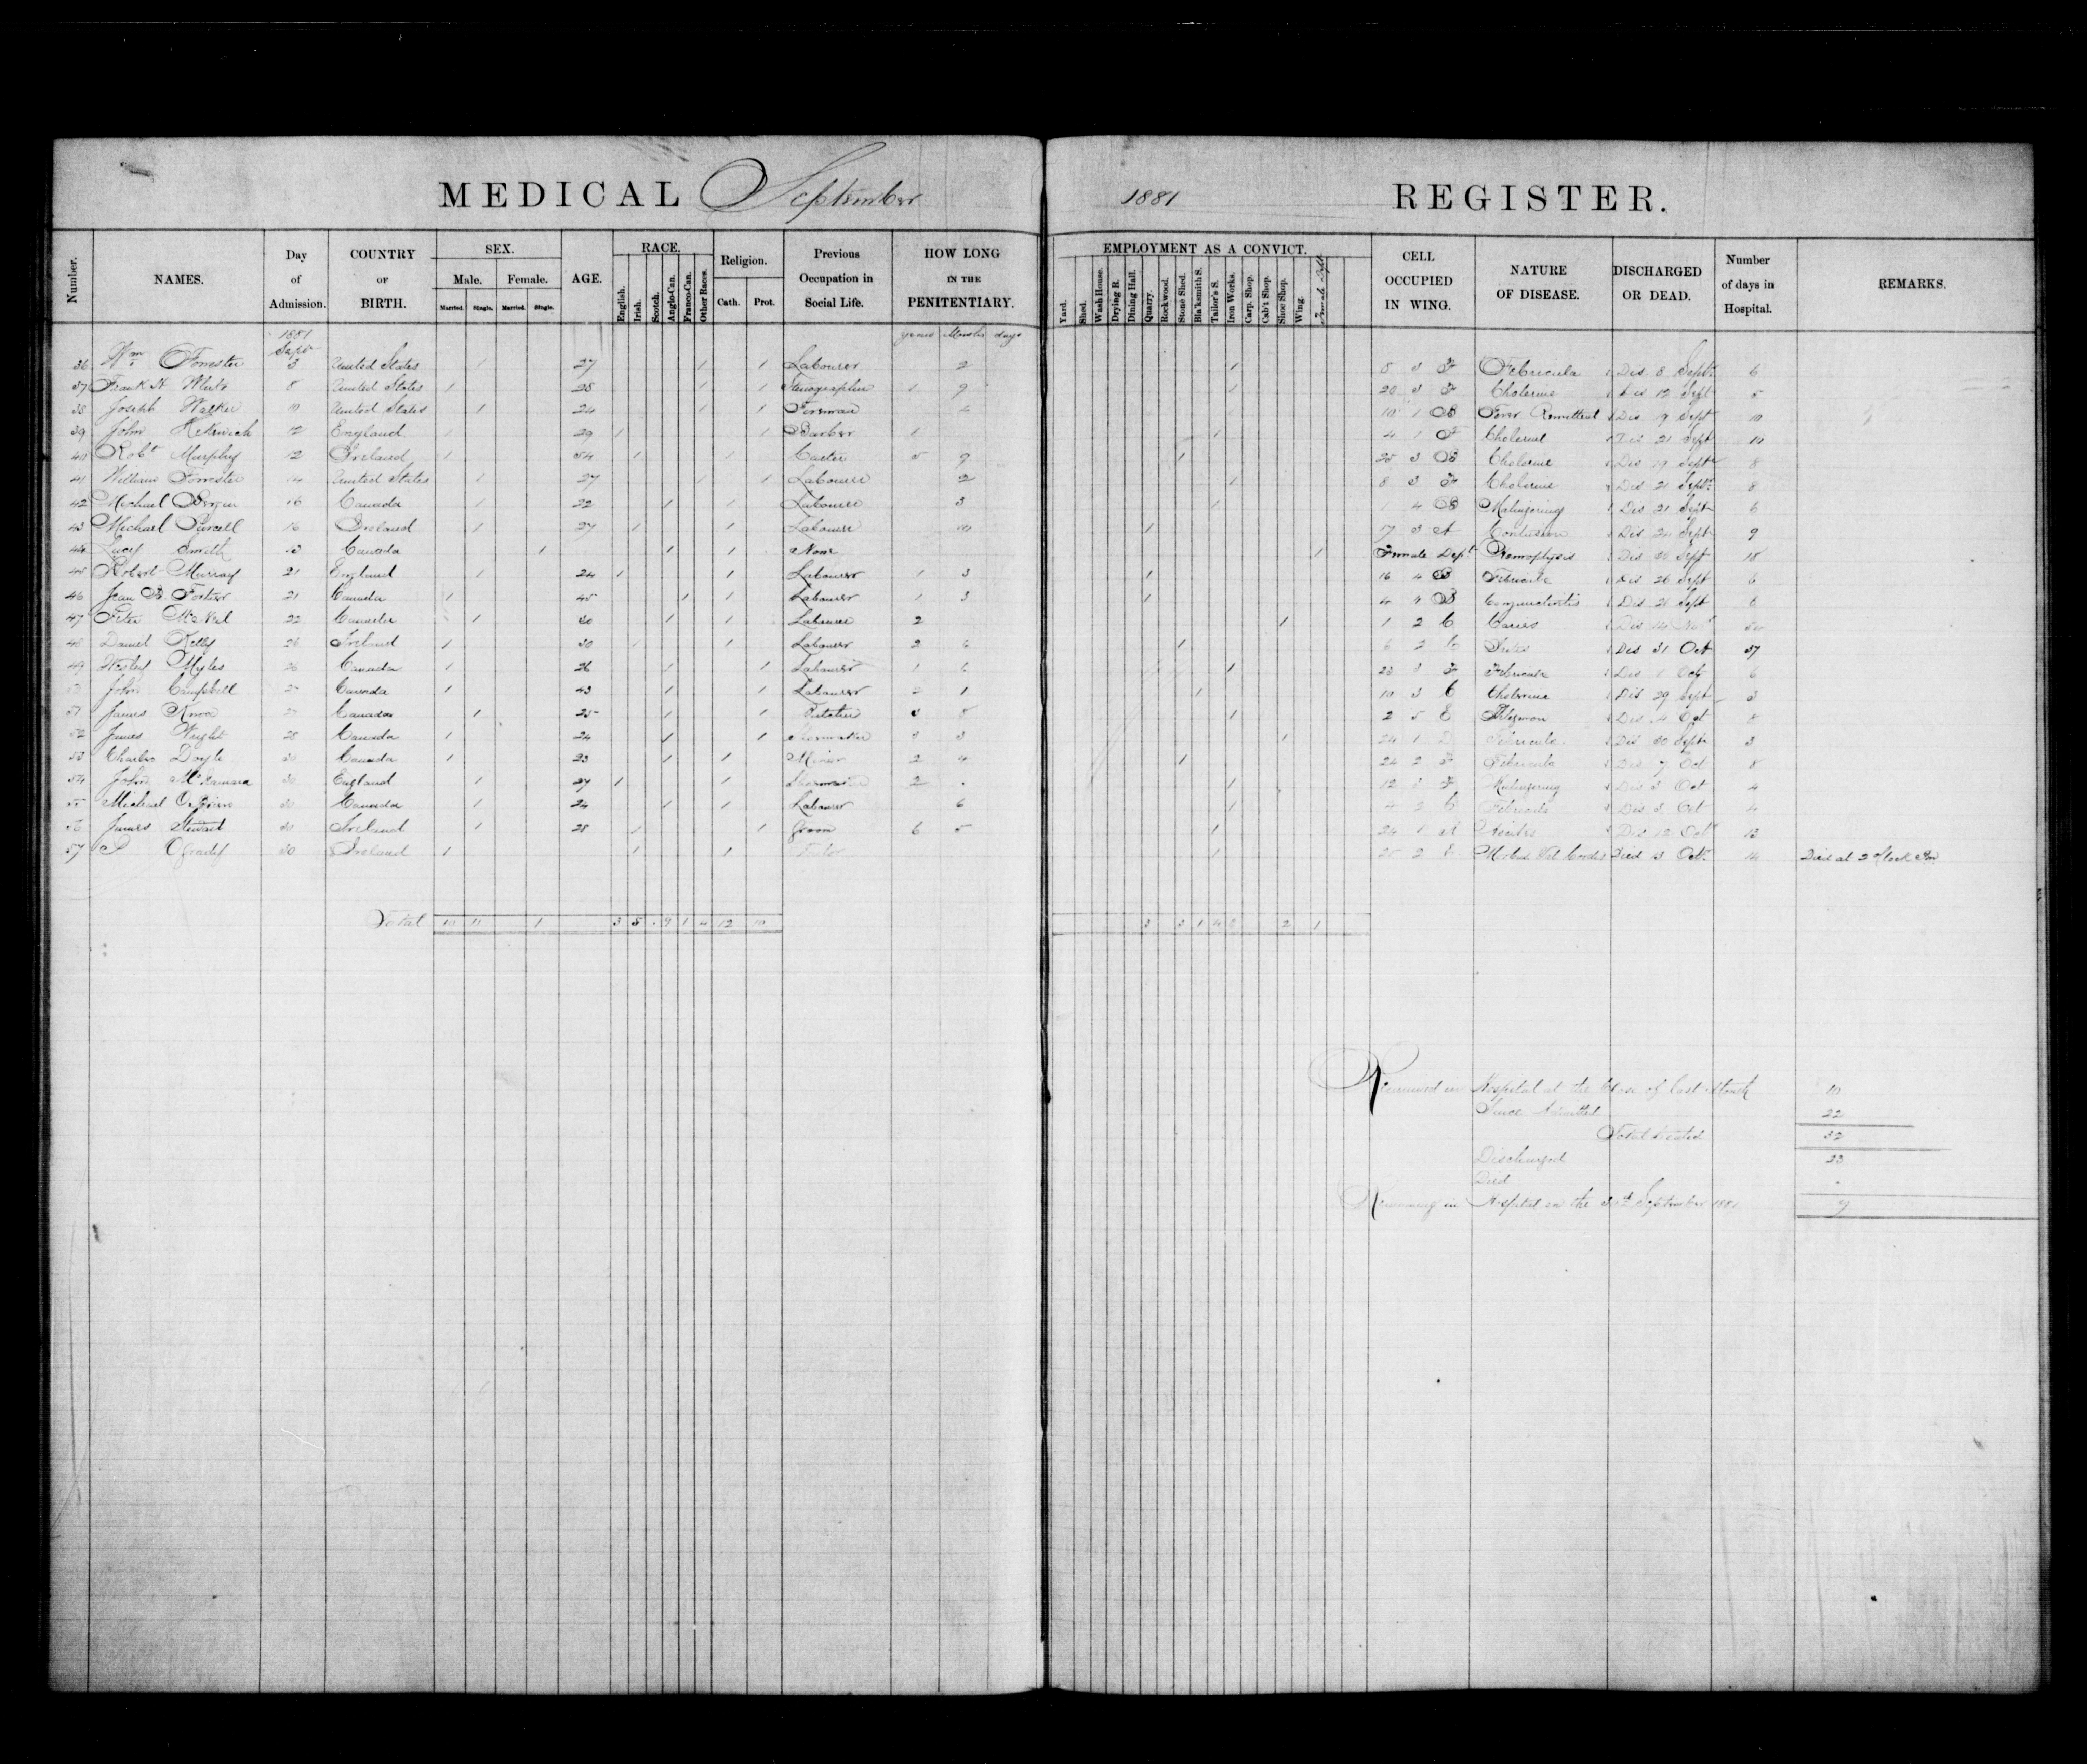 MEDICAL September 1881 REGISTER.
Number. NAMES. Day of Admission. COUNTRY OF BIRTH. SEX. Male. Female. Married. Single. Married. Single. AGE. RACE. English. Irish. Scotch. Anglo-Can. Franco-Can. Other Races. Religion. Cath. Prot. Previous Occupation in Social Life. HOW LONG IN THE PENITENTIARY. EMPLOYMENT AS A CONVICT. Yard. Shed. Wash House. Drying R. Dining Hall. Quarry. Rockwood. Stone Shed. Bla'ksmith S. Tailor's S. Iron Works. Carp. Shop. Cab't Shop. Shoe Shop. Wing. Female Dept CELL OCCUPIED IN WING. NATURE OF DISEASE. DISCHARGED OR DEAD. Number of days in Hospital. REMARKS.
1881 Sept years Months days
36 Wm Forrester 3 United States 1 27 1 1 Labourer 2 1 8 3 F Febricula Dis 8 Sept 6
37 Frank H 8 United States 1 28 1 1 Stenographer 1 9 1 20 3 F Cholerine Dis 12 Sept 5
38 Joseph Walker 10 United States 1 24 1 1 4 10 1 B Fever Remittent Dis 19 Sept 10
39 John 12 England 1 29 1 1 Barber 1 1 4 1 F Cholerine Dis 21 Sept 10
40 Robt Murphy 12 Ireland 1 54 1 1 5 9 1 25 3 B Cholerine Dis 19 Sept 8
41 William Forrester 14 United States 1 27 1 1 Labourer 2 1 8 3 F Cholerine Dis 21 Sept 8
42 Michael 16 Canada 1 22 1 1 Labourer 3 1 1 4 B Malingering Dis 21 Sept 6
43 Michael Purcell 16 Ireland 1 27 1 1 Labourer 10 1 17 3 A Contusion Dis 24 Sept 9
44 Lucy Smith 13 Canada 1 1 1 None 1 Female Dept Dis 30 Sept 18
45 Robert Murray 21 England 1 24 1 1 Labourer 1 3 1 16 4 B Febricula Dis 26 Sept 6
46 Jean B Fortier 21 Canada 1 45 1 1 Labourer 1 3 1 4 4 B Conjunctivitis Dis Sept 6
47 Peter McNeil 22 Canada 1 30 1 1 Labourer 2 1 1 2 C Caries Dis 14 Nov
48 Daniel Kelly 26 Ireland 1 30 1 1 Labourer 2 6 1 6 2 C Dis 31 Oct 37
49 Wesley Myles 26 Canada 1 26 1 1 Labourer 1 6 1 23 3 F Febricula Dis 1 Oct 6
50 John Campbell 27 Canada 1 43 1 1 Labourer 2 1 1 10 3 C Cholerine Dis 29 Sept 3
51 James Knox 27 Canada 1 25 1 1 3 8 1 2 5 E Phlegmon Dis 4 Oct 8
52 James Wright 28 Canada 1 24 1 1 Shoemaker 3 3 1 24 1 D Febricula Dis 30 Sept 3
53 Charles Doyle 30 Canada 1 23 1 1 Miner 2 4 1 24 2 F Febricula Dis 7 Oct 8
54 John McNamara 30 England 1 27 1 1 Shoemaker 2 . 1 12 3 F Malingering Dis 3 Oct 4
55 Michael O'Brien 30 Canada 1 24 1 1 Labourer 6 1 4 2 C Febricula Dis 3 Oct 4
56 James Stewart 30 Ireland 1 28 1 1 Groom 6 5 1 24 1 A Ascites Dis 12 Oct 13
57 P Ogrady 30 Ireland 1 1 1 1 25 2 E Morbus Val Cordis Died 13 Oct 14 Died at 2 oClock Pm
Total 10 11 1 3 5 . 9 1 4 12 10 3 3 1 4 8 2 1
Remained in Hospital at the Close of last Month 10
Since Admitted 22
Total treated 32
Discharged 23
Died .
Remaining in Hospital on the 30th September 1881 9